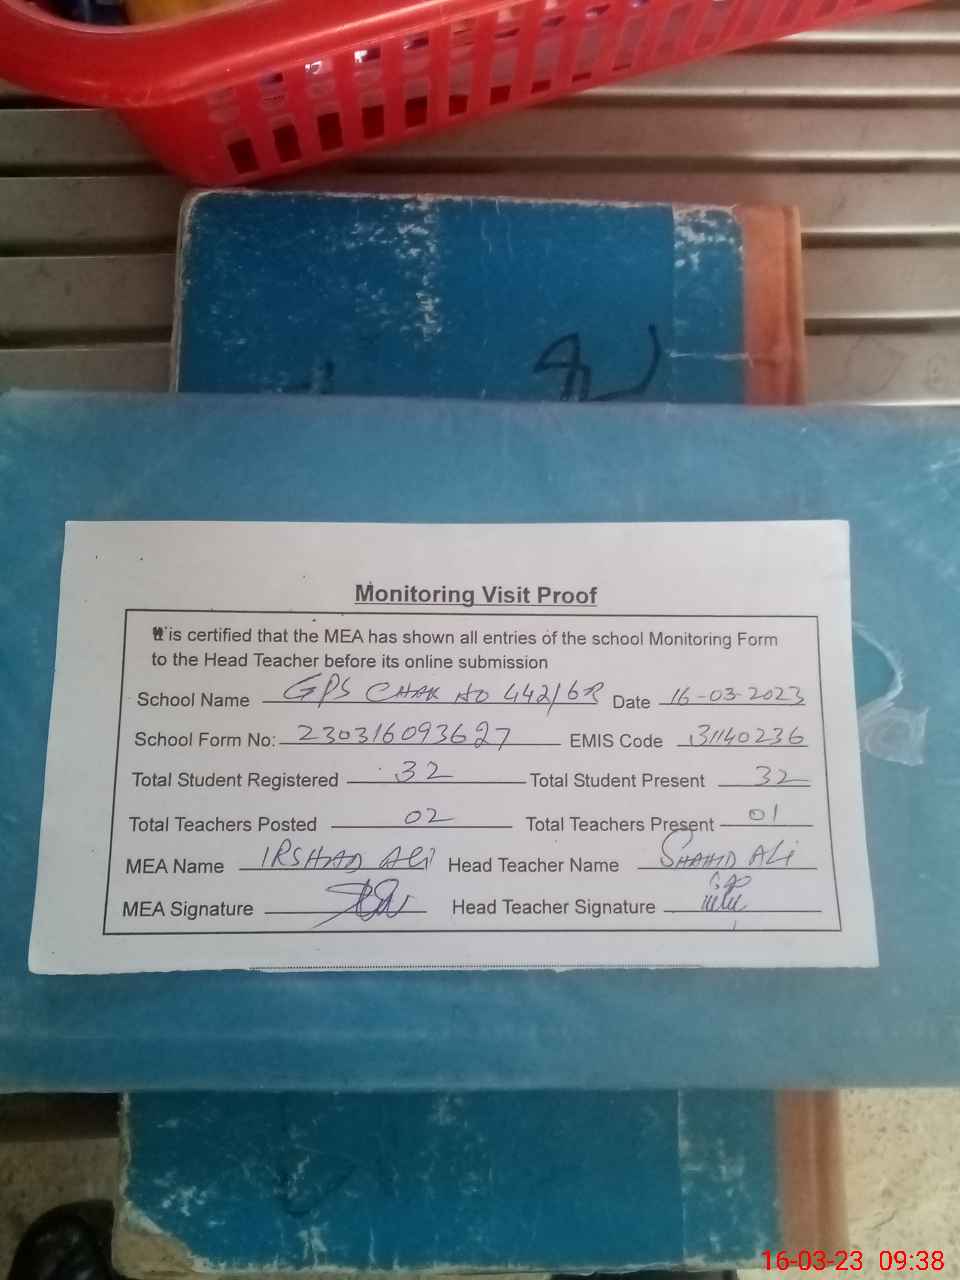 Monitoring Visit Proof
It is certified that the MEA has shown all entries of the school Monitoring Form
to the Head Teacher before its online submission
School Name GPS CHAK NO 442/6R Date 16-03-2023
School Form No: 230316093627 EMIS Code 31140236
Total Student Registered 32 Total Student Present 32
Total Teachers Posted 02 Total Teachers Present 01
MEA Name IRSHAD ALI Head Teacher Name SHAHID ALI
MEA Signature Head Teacher Signature
16-03-23 09:38